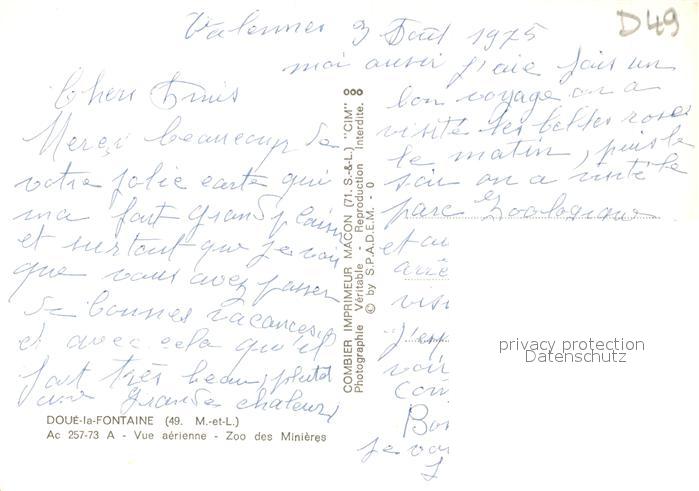 D49
3 Août 1975
Chers Amis
Merci beaucoup de
votre jolie carte qui
ma fait grand plaisir
et surtout que je vois
que vous avez passer
de bonnes vacances
et avec cela qu'il
fait très beau, plutôt
une grande chaleur,
moi aussi j'aie fais un
bon voyage on a
visité les belles roses
le matin, puis le
soir on a visité le
parc Zoologique
et au
visi
j'esp
voir
Con
Bon
je vo
COMBIER IMPRIMEUR MACON (71. S.-&-L.) "CIM"
Photographie Véritable - Reproduction Interdite.
© by S.P.A.D.E.M. - 0
privacy protection
Datenschutz
DOUÉ-la-FONTAINE (49. M.-et-L.)
Ac 257-73 A - Vue aérienne - Zoo des Minières